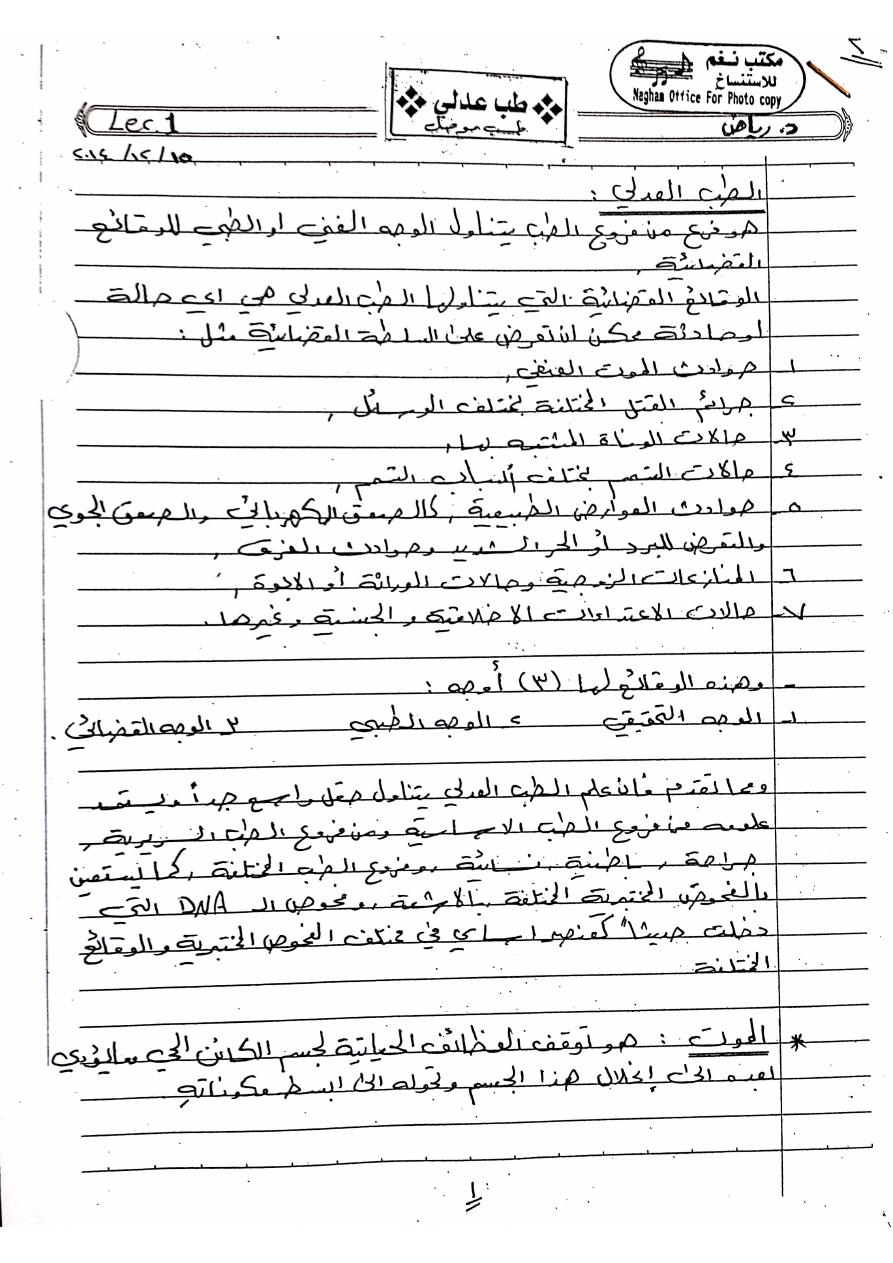 مكتب نغم
للاستنساخ
Nagham Office For Photo copy
طب عدلي
طب موصل
د. رياض
Lec. 1
٢٠١٤/١٢/١٥
الطب العدلي :
هو فرع من فروع الطب يتناول الوجه الفني او الطبي للوقائع
القضائية .
الوقائع القضائية التي يتناولها الطب العدلي هي اي حالة
او حادثة ممكن ان تعرض على السلطة القضائية مثل :
١- حوادث الموت العنفي .
٢- جرائم القتل المختلفة بمختلف الوسائل .
٣- حالات الوفاة المشتبه بها .
٤- حالات التسمم بمختلف أسباب التسمم .
٥- حوادث العوارض الطبيعية , كالصعق الكهربائي والصعق الجوي
والتعرض للبرد أو الحر الشديد وحوادث الغرق .
٦- المنازعات الزوجية وحالات الوراثة أو الابوة .
٧- حالات الاعتداءات الاخلاقية والجنسية وغيرها .
- وهذه الوقائع لها (٣) أوجه :
١- الوجه التحقيقي ٢- الوجه الطبي ٣- الوجه القضائي .
ومما تقدم فان علم الطب العدلي يتناول حقل واسع جداً ويستمد
علومه من فروع الطب الاساسية ومن فروع الطب السريرية ,
جراحة , باطنية , نسائية , وفروع الطب المختلفة , كما يستعين
بالفحوص المختبرية المختلفة , بالاشعة , وفحوص الـ DNA التي
دخلت حديثاً كعنصر اساسي في مختلف الفحوص المختبرية والوقائع
المختلفة
* الموت : هو توقف الوظائف الحياتية لجسم الكائن الحي مما يؤدي
بعده الى إنحلال هذا الجسم وتحوله الى ابسط مكوناته
١